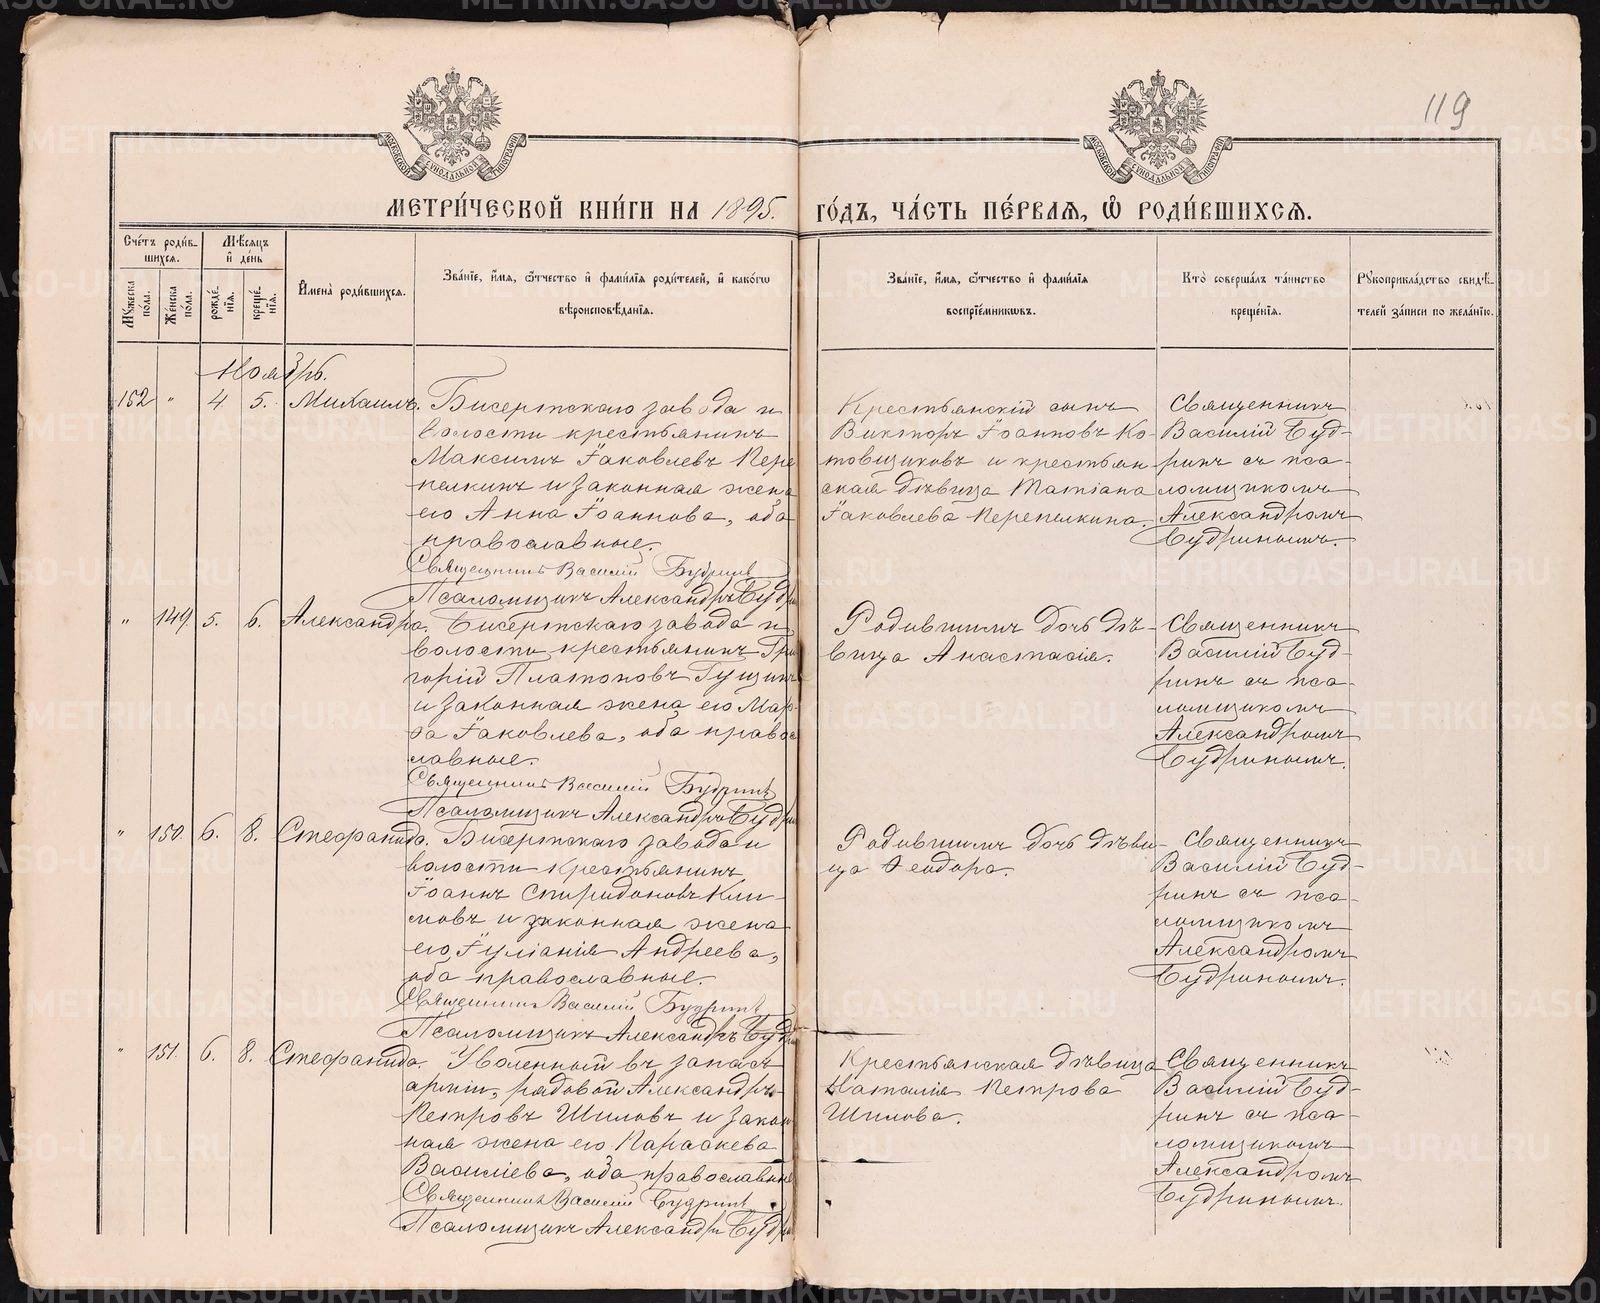 119
МОСКОВСКОЙ СѴНОДАЛЬНОЙ ТИПОГРАФІИ
МОСКОВСКОЙ СѴНОДАЛЬНОЙ ТИПОГРАФІИ
МЕТРИ́ЧЕСКОЙ КНИ́ГИ НА 1895. ГО́ДЪ, ЧА́СТЬ ПЕ́РВАЯ, Ѽ РОДИ́ВШИХСЯ.
Сче́тъ роди́в-
шихся.
Мѣ́сяцъ
и҆ де́нь
Мꙋ́жеска
по́ла.
Же́нска
по́ла.
рожде́-
нїя.
креще́-
нїя.
И҆мена̀ роди́вшихся.
Зва́нїе, и҆́мя, ѻ҆́тчество и҆ фами́лїя роди́телей, и҆ како́гѡ
вѣроисповѣ́данїя.
Зва́нїе, и҆́мя, ѻ҆́тчество и҆ фами́лїя
воспрїе́мникѡвъ.
Кто̀ соверша́лъ та́инство
креще́нїя.
Рꙋкоприкла́дство свидѣ́-
телей за́писи по жела́нїю.
Ноябрь.
152 " 4 5. Михаилъ.
Бисертскаго завода и
волости крестьянинъ
Максимъ Іаковлевъ Пере
пелкинъ и законная жена
его Анна Іоаннова, оба
православные.
Священникъ Василій Будринъ
Псаломщикъ Александръ Будри
Крестьянскій сынъ
Викторъ Іоанновъ Ко-
товщиковъ и крестьян
ская дѣвица Татіана
Іаковлева Перепелкина.
Священникъ
Василій Буд-
ринъ съ пса-
ломщикомъ
Александромъ
Будринымъ.
" 149. 5. 6. Александра.
Бисертскаго завода и
волости крестьянинъ Гри
горій Платоновъ Гущинъ
и законная жена его Мар-
ѳа Іаковлева, оба правос
лавные.
Священникъ Василій Будринъ
Псаломщикъ Александръ Будри
Родившимъ дочь дѣ-
вица Анастасія.
Священникъ
Василій Буд-
ринъ съ пса-
ломщикомъ
Александромъ
Будринымъ.
" 150 6. 8. Стефанида.
Бисертскаго завода и
волости крестьянинъ
Іоаннъ Спиридоновъ Кли-
мовъ и законная жена
его Іуліанія Андреева,
оба православные.
Священникъ Василій Будринъ
Псаломщикъ Александръ Будри
Родившимъ дочь дѣви-
ца Ѳеодора.
Священникъ
Василій Буд-
ринъ съ пса-
ломщикомъ
Александромъ
Будринымъ.
" 151. 6. 8. Стефанида.
Уволенный въ запасъ
арміи, рядовой Александръ
Петровъ Шиловъ и закон
ная жена его Параскева
Василіева, оба православные
Священникъ Василій Будринъ
Псаломщикъ Александръ Будри
Крестьянская дѣвица
Наталія Петрова
Шилова.
Священникъ
Василій Буд-
ринъ съ пса-
ломщикомъ
Александромъ
Будринымъ.
METRIKI.GASO-URAL.RU